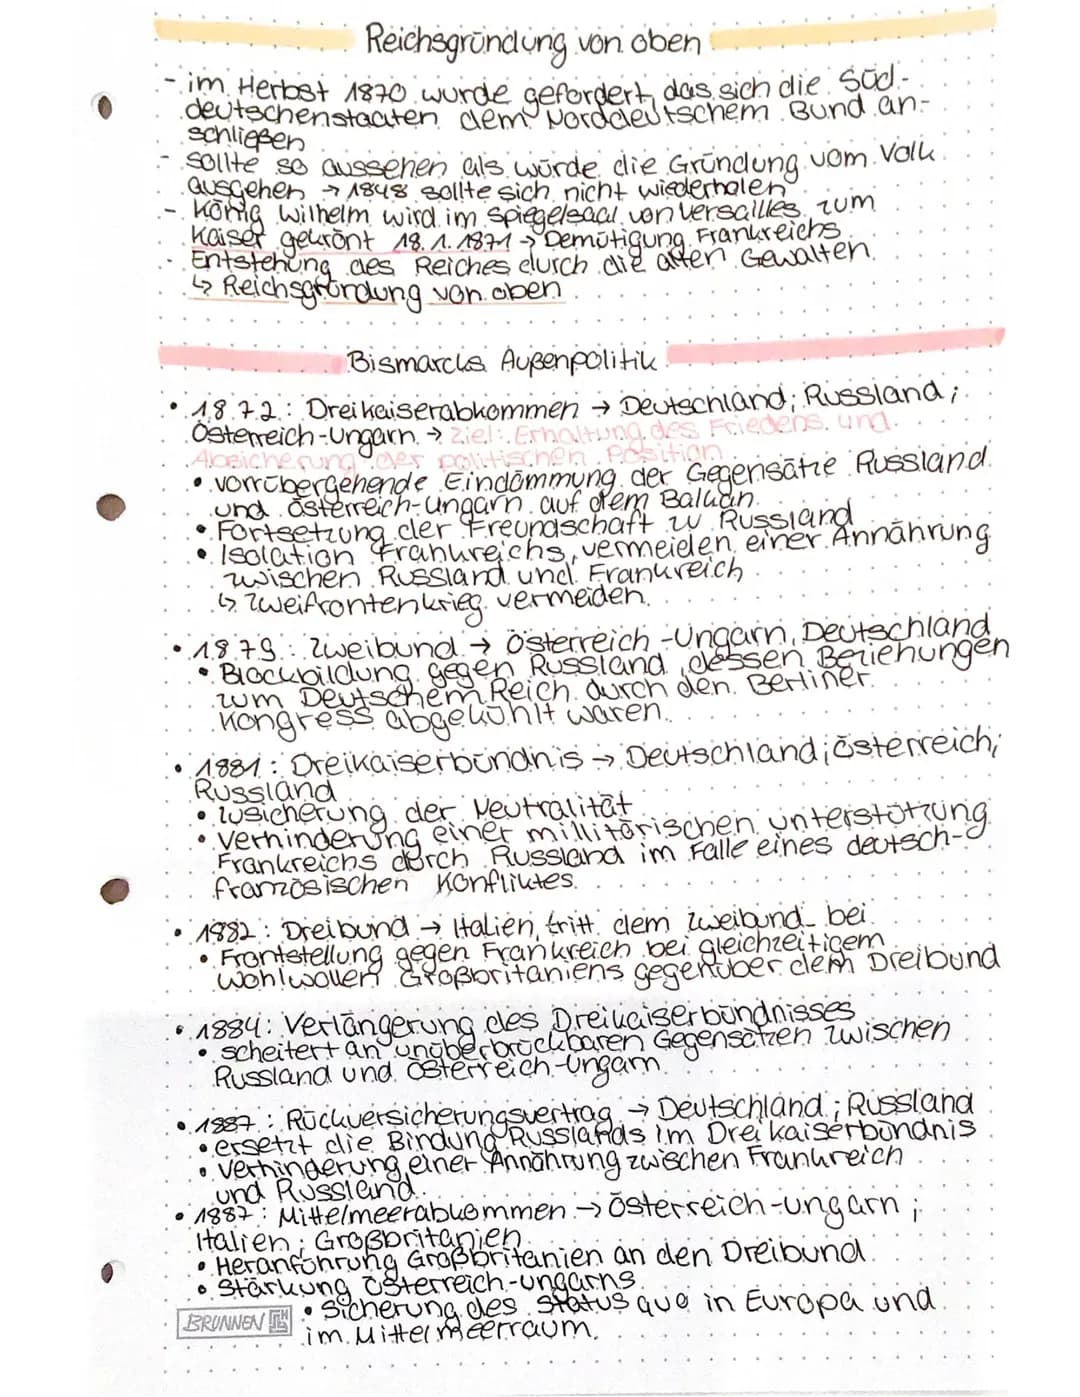 Reichsgründung von oben
- im Herbst 1870 wurde gefordert, das sich die Süd-
deutschenstaaten dem Norddeutschem Bund an-
schließen
- sollte so aussehen als würde die Gründung vom Volk
ausgehen → 1848 sollte sich nicht wiederholen
- König Wilhelm wird im Spiegelsaal von Versailles zum
Kaiser gekrönt 18.1.1871 → Demütigung Frankreichs
- Entstehung des Reiches durch die alten Gewalten
↳ Reichsgründung von oben
Bismarcks Außenpolitik
• 1872: Dreikaiserabkommen → Deutschland; Russland;
Österreich-Ungarn → Ziel: Erhaltung des Friedens und
Absicherung der politischen Position
• vorrübergehende Eindämmung der Gegensätze Russland
und Österreich-Ungarn auf dem Balkan
• Fortsetzung der Freundschaft zu Russland
• Isolation Frankreichs, vermeiden einer Annährung
zwischen Russland und Frankreich
↳ Zweifrontenkrieg vermeiden
• 1879: Zweibund → Österreich-Ungarn, Deutschland
• Blockbildung gegen Russland, dessen Beziehungen
zum Deutschem Reich durch den Berliner
Kongress abgekühlt waren
• 1881: Dreikaiserbündnis → Deutschland; Österreich;
Russland
• Zusicherung der Neutralität
• Verhinderung einer millitärischen unterstützung
Frankreichs durch Russland im Falle eines deutsch-
französischen Konfliktes
• 1882: Dreibund → Italien tritt dem Zweibund bei
• Frontstellung gegen Frankreich bei gleichzeitigem
wohlwollen Großbritaniens gegenüber dem Dreibund
• 1884: Verlängerung des Dreikaiserbündnisses
• scheitert an unüberbrückbaren Gegensätzen zwischen
Russland und Österreich-Ungarn
• 1887: Rückversicherungsvertrag → Deutschland; Russland
• ersetzt die Bindung Russlands im Dreikaiserbündnis
• Verhinderung einer Annährung zwischen Frankreich
und Russland
• 1887: Mittelmeerabkommen → Österreich-ungarn;
Italien; Großbritanien
• Heranführung Großbritanien an den Dreibund
• Stärkung Österreich-ungarns
• Sicherung des Status quo in Europa und
im Mittelmeerraum
BRUNNEN